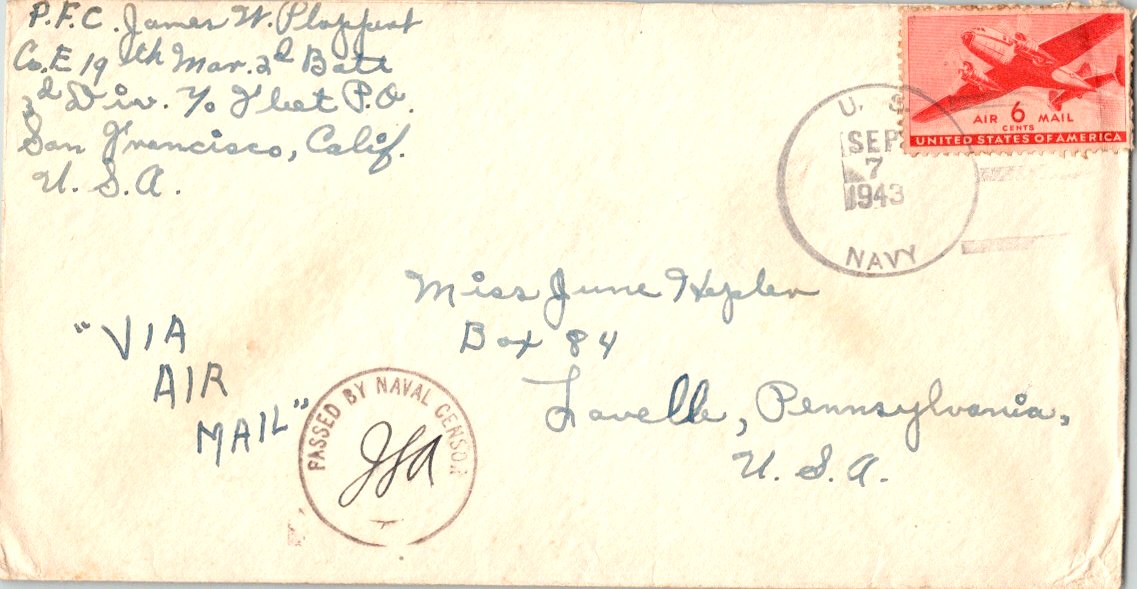 P.F.C. James W. 
Co. E 19th Mar. 2d Batt
3d Div. c/o Fleet P.O.
San Francisco, Calif.
U. S. A.
AIR 6 MAIL
CENTS
UNITED STATES OF AMERICA
U. S.
SEP
7
1943
NAVY
Miss June Hepler
Box 84
Lavelle, Pennsylvania,
U. S. A.
"VIA
AIR
MAIL"
PASSED BY NAVAL CENSOR